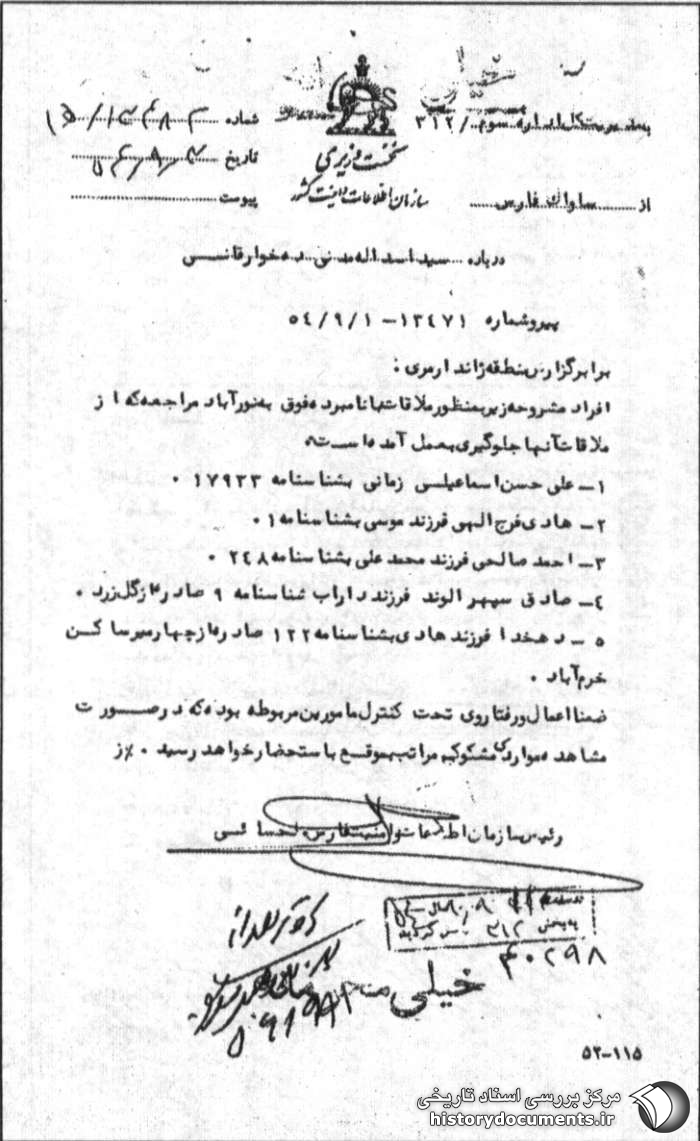 خیلی
به مدیریت کل اداره سوم /۳۱۲
شماره ۱۵/۱۳۴۸۲
نخست وزیری
تاریخ
سازمان اطلاعات و امنیت کشور
از ساواک فارس
پیوست
درباره سید اسداله مدنی دهخوارقانی
پیرو شماره ۱۳۴۷۱-۵۴/۹/۱
برابر گزارش منطقه ژاندارمری :
افراد مشروحه زیر بمنظور ملاقات با نامبرده فوق به نورآباد مراجعه که از
ملاقات آنها جلوگیری بعمل آمده است.
۱- علی حسن اسماعیلی زمانی بشناسنامه ۱۷۹۳۳ .
۲- هادی فرج الهی فرزند موسی بشناسنامه ۱۰
۳- احمد صالحی فرزند محمد علی بشناسنامه ۲۴۸ .
۴- صادق سپهر الوند فرزند داراب شناسنامه ۹ صادره از گل زرد .
۵- دهخدا فرزند هادی بشناسنامه ۱۲۲ صادره از چهارمیر ساکن
خرم آباد .
ضمنا اعمال و رفتار وی تحت کنترل مامورین مربوطه بوده که در صورت
مشاهده مواردی مشکوک مراتب بموقع باستحضار خواهد رسید . %ز
رئیس سازمان اطلاعات و امنیت فارس
به بخش ۳۱۲
۴۰۲۹۸
خیلی
۵۲-۱۱۵
مرکز بررسی اسناد تاریخی
historydocuments.ir